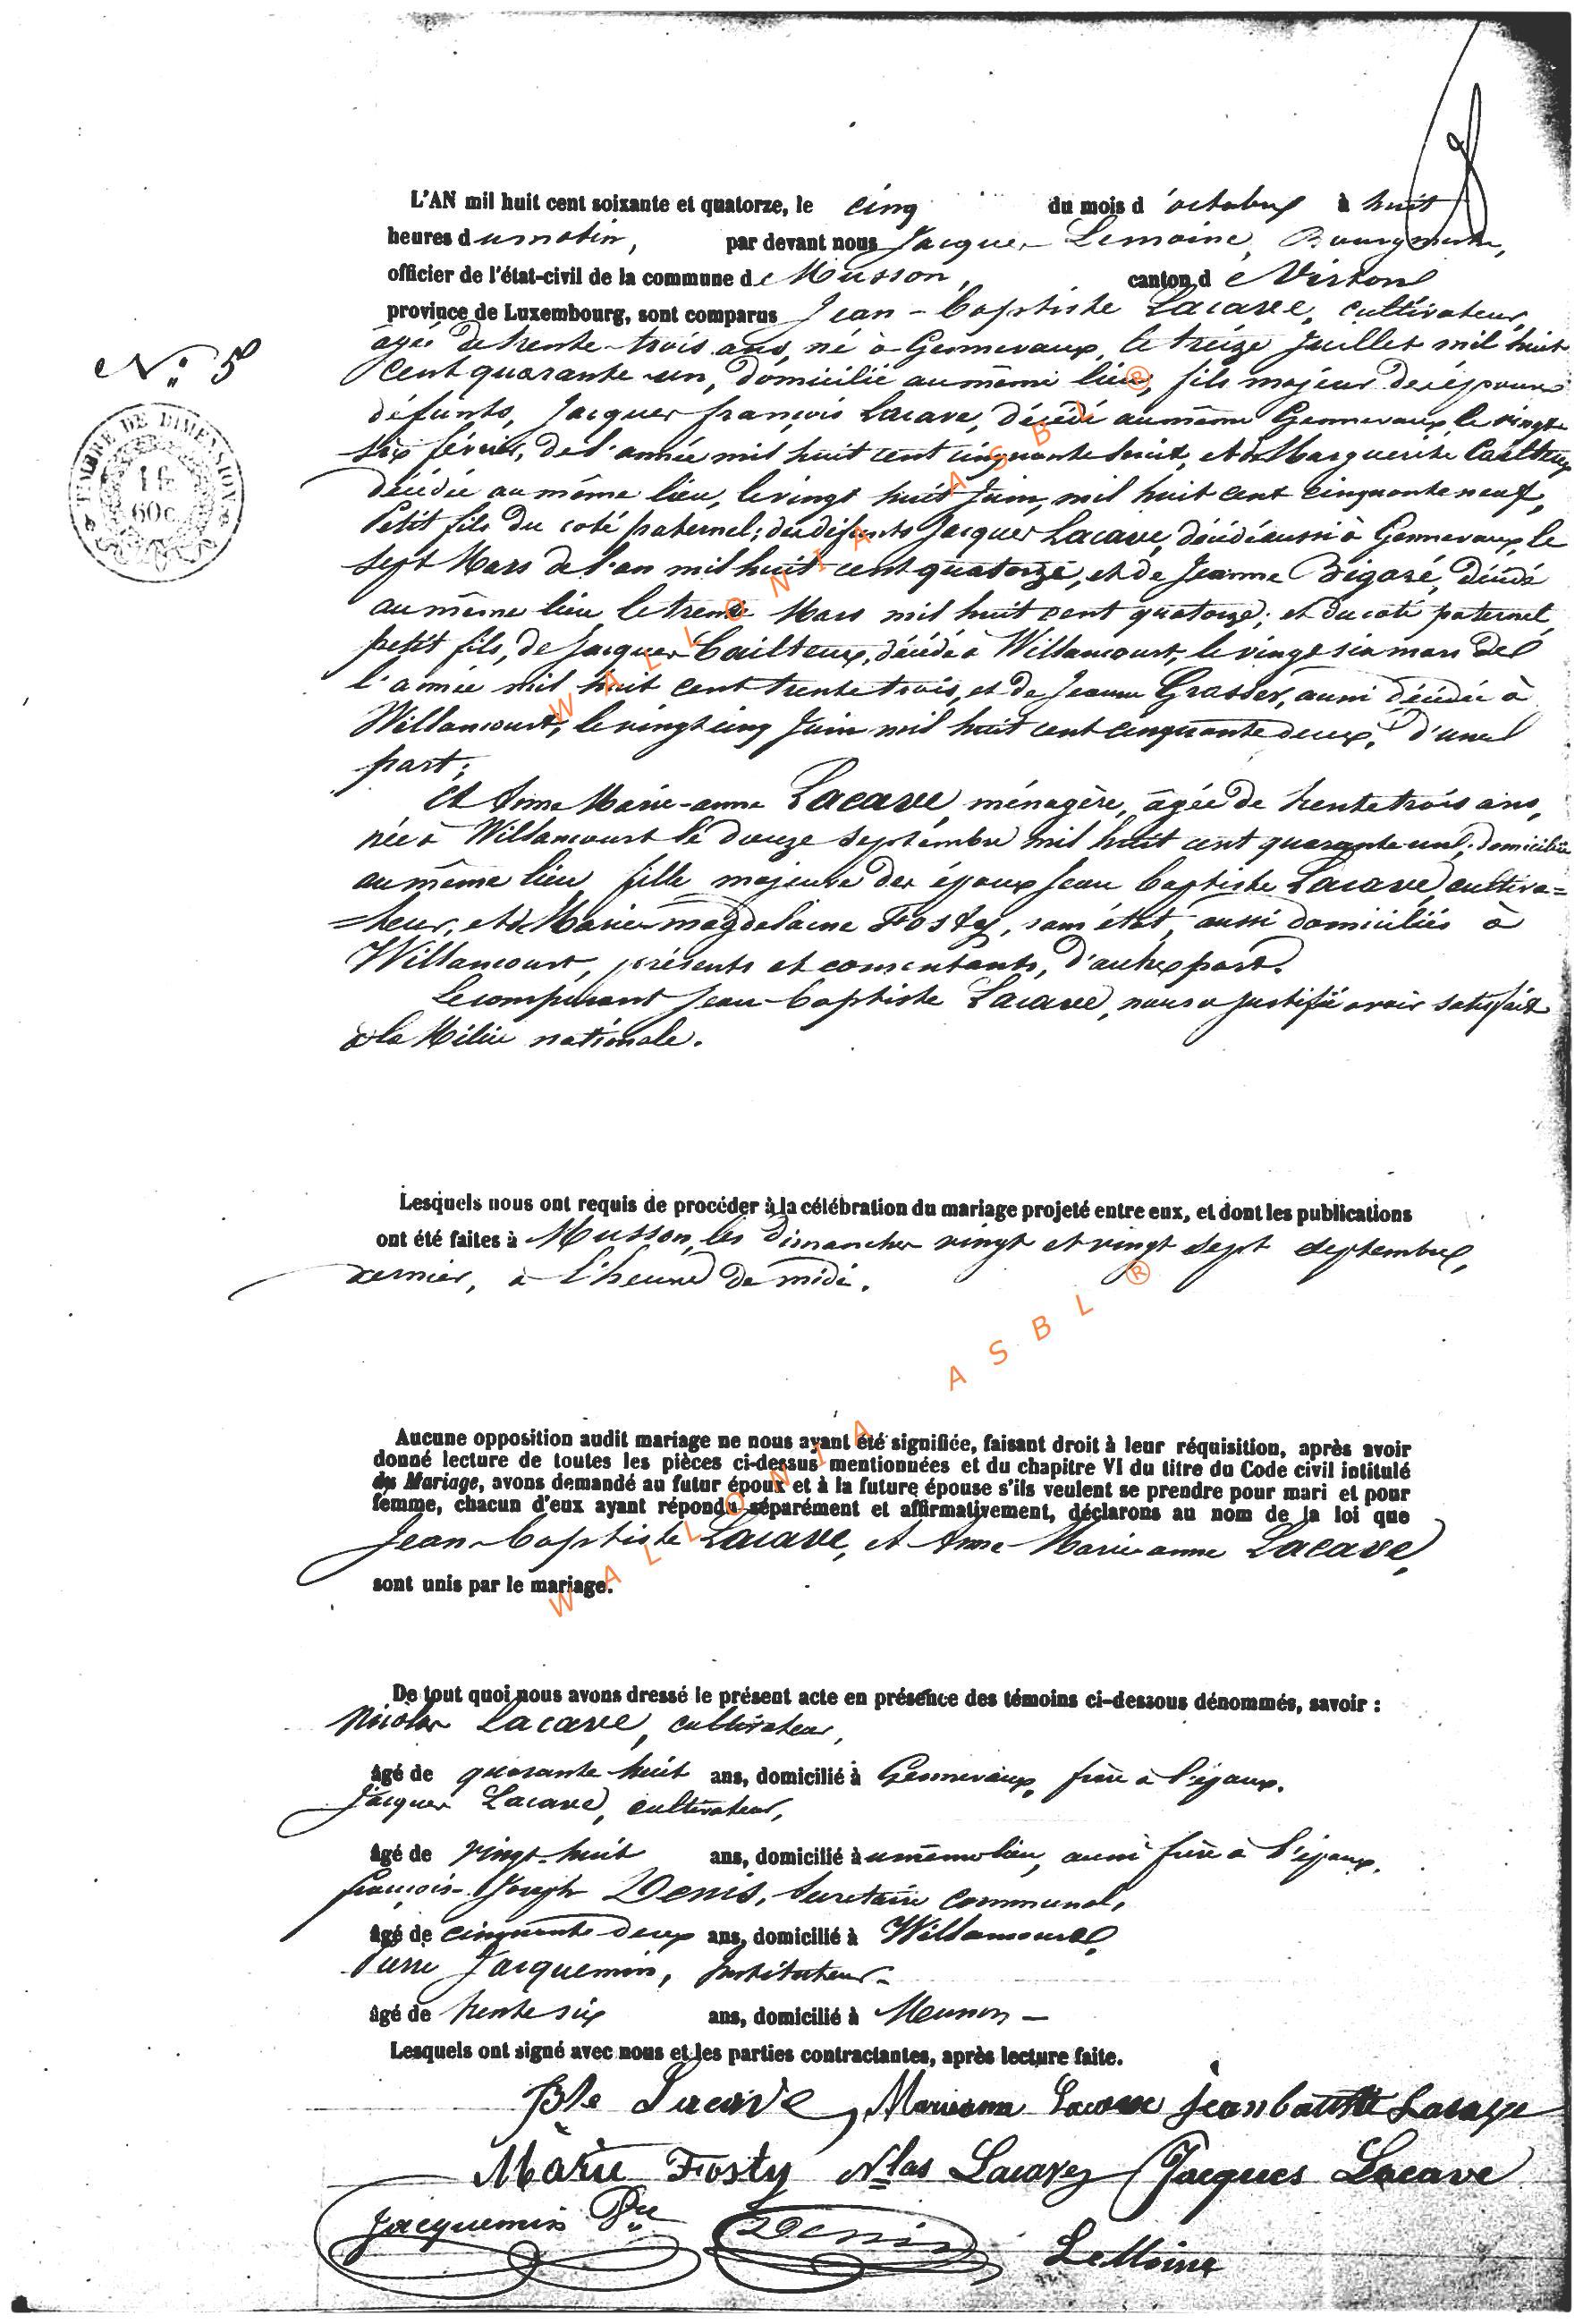 L'AN mil huit cent soixante et quatorze, le cinq du mois d'octobre à huit
heures du matin, par devant nous Jacques Lemoine, Bourgmestre,
officier de l'état-civil de la commune de Musson, canton de Virton
province de Luxembourg, sont comparus Jean-Baptiste Lacave, cultivateur,
âgé de trente-trois ans, né à Gennevaux, le treize Juillet mil huit
N° 5
cent quarante-un, domicilié au même lieu, fils majeur des époux
défunts, Jacques françois Lacave, décédé au même Gennevaux, le vingt
TIMBRE DE DIMENSION
1 fr.
60c.
six février, de l'année mil huit cent cinquante huit, et de Marguerite Cailteux
décédée au même lieu, le vingt huit Juin, mil huit cent cinquante neuf,
Petit fils du coté paternel; des défunts Jacques Lacave, décédé aussi à Gennevaux, le
sept Mars de l'an mil huit cent quatorze, et de Jeanne Bigoré, décédé
au même lieu, le treize Mars mil huit cent quatorze; et du coté paternel,
petit fils, de Jacques Cailteux, décédé à Willancourt, le vingt six mars de
l'année mil huit cent trente trois, et de Jeanne Grasser, aussi décédée à
Willancourt, le vingt cinq Juin mil huit cent cinquante deux, d'une
part;
Et Anne Marie-anne Lacave, ménagère, âgée de trente trois ans,
née à Willancourt le douze septembre mil huit cent quarante un, domiciliée
au même lieu, fille majeure des époux Jean Baptiste Lacave, cultiva=
=teur, et de Marie-magdelaine Fosty, sans état, aussi domiciliés à
Willancourt, présents et consentants, d'autre part.
Le comparant Jean-Baptiste Lacave, nous a justifié avoir satisfait
à la Milice nationale.
Lesquels nous ont requis de procéder à la célébration du mariage projeté entre eux, et dont les publications
ont été faites à Musson, les Dimanches vingt et vingt sept septembre,
dernier, à l'heure de midi.
Aucune opposition audit mariage ne nous ayant été signifiée, faisant droit à leur réquisition, après avoir
donné lecture de toutes les pièces ci-dessus mentionnées et du chapitre VI du titre du Code civil intitulé
du Mariage, avons demandé au futur époux et à la future épouse s'ils veulent se prendre pour mari et pour
femme, chacun d'eux ayant répondu séparément et affirmativement, déclarons au nom de la loi que
Jean-Baptiste Lacave, et Anne-Marie-anne Lacave,
sont unis par le mariage.
De tout quoi nous avons dressé le présent acte en présence des témoins ci-dessous dénommés, savoir :
Nicolas Lacave, cultivateur,
âgé de quarante-huit ans, domicilié à Gennevaux, frère à l'époux.
Jacques Lacave, cultivateur,
âgé de vingt-huit ans, domicilié au même lieu, aussi frère à l'époux,
françois-Joseph Denis, Secretaire communal,
âgé de cinquante-deux ans, domicilié à Willancourt,
Pierre Jacquemin, Instituteur-
âgé de trente six ans, domicilié à Musson —
Lesquels ont signé avec nous et les parties contractantes, après lecture faite.
Bte Lacave, Marieanne Lacave jeanbatiste Lacave
Marie Fosty Nlas Lacave Jacques Lacave
Jacquemin Pre Denis LeMoine
WALLONIA ASBL ®
WALLONIA ASBL ®